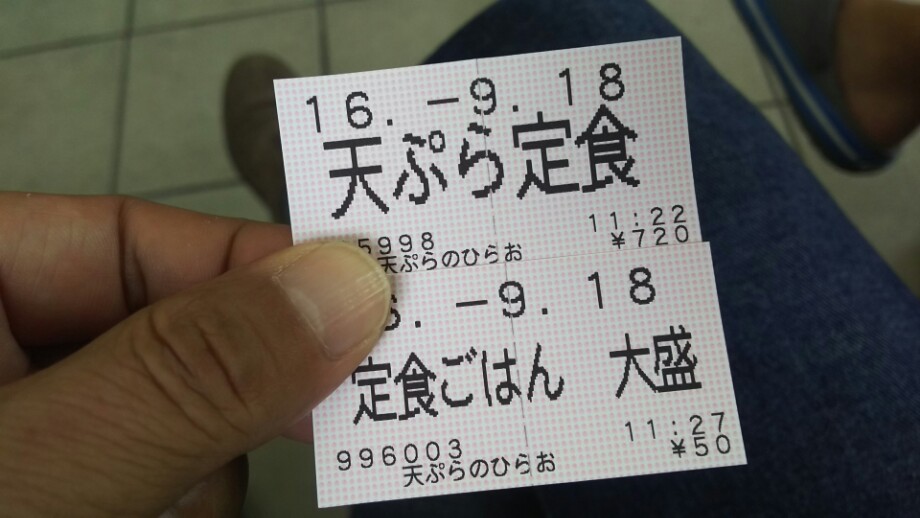 16.-9.18
天ぷら定食
11:22
5998 ¥720
天ぷらのひらお
6.-9.18
定食ごはん 大盛
11:27
996003 ¥50
天ぷらのひらお